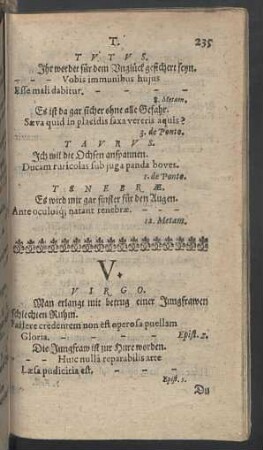 T. 235
TVTVS.
Ihr werdet für dem Unglück gesichert seyn.
– – – Vobis immunibus hujus
Esse mali dabitur. – – – –
8. Metam.
Es ist da gar sicher ohne alle Gefahr.
Sæva quid in placidis saxa vereris aquis?
3. de Ponto.
TAVRVS.
Ich wil die Ochsen anspannen.
Ducam ruricolas sub juga panda boves.
1. de Ponto.
TENEBRÆ.
Es wird mir gar finster für den Augen.
Ante oculoiq; natant tenebræ. – – –
12. Metam.
V.
VIRGO.
Man erlangt mit betrug einer Jungfrawen
schlechten Ruhm.
Fallere credentem non est operosa puellam
Gloria. – – – – – Epist. 2.
Die Jungfraw ist zur Hure worden.
– – Huic nullâ reparabilis arte
Læsa pudicitia est. – – – –
Epist. 5.
Du